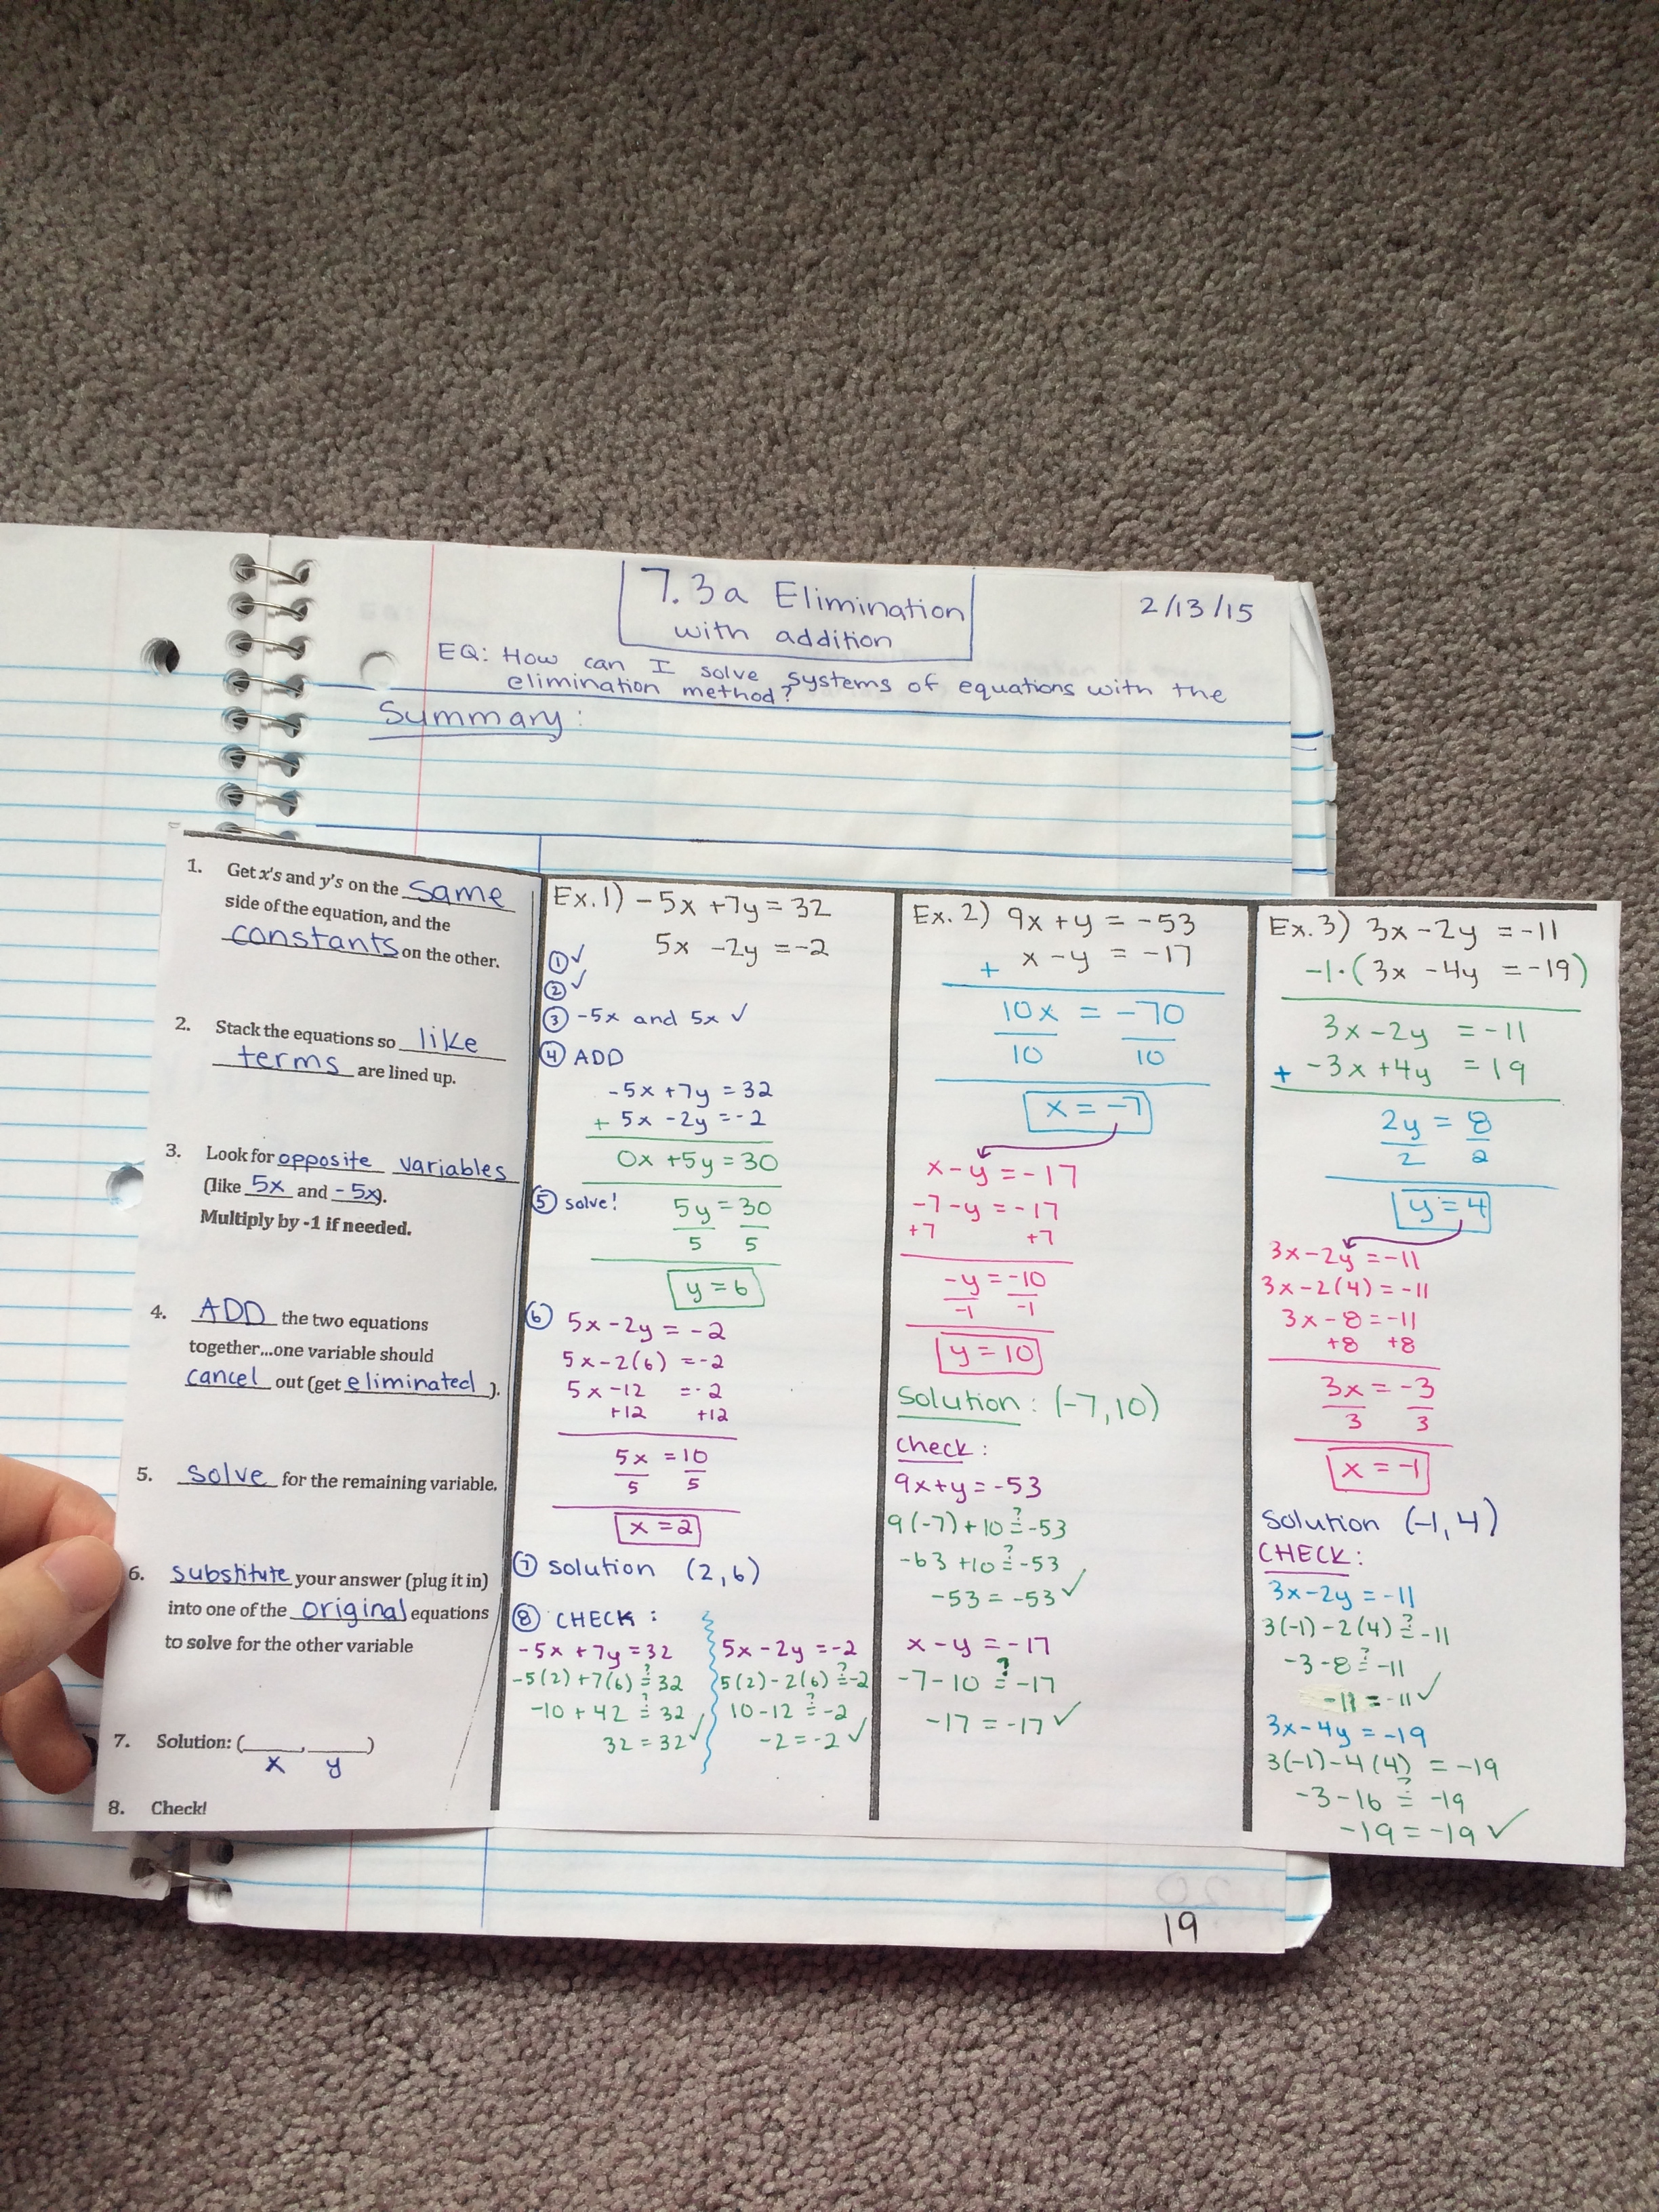 7.3a Elimination
with addition
2/13/15
EQ: How can I solve systems of equations with the
elimination method?
Summary:
1. Get x's and y's on the same
side of the equation, and the
constants on the other.
2. Stack the equations so like
terms are lined up.
3. Look for opposite variables
(like 5x and -5x).
Multiply by -1 if needed.
4. ADD the two equations
together...one variable should
cancel out (get eliminated).
5. solve for the remaining variable.
6. substitute your answer (plug it in)
into one of the original equations
to solve for the other variable
7. Solution: (____,____)
x y
8. Check!
Ex. 1) -5x + 7y = 32
5x - 2y = -2
① ✓
② ✓
③ -5x and 5x ✓
④ ADD
-5x + 7y = 32
+ 5x - 2y = -2
0x + 5y = 30
⑤ solve! 5y = 30
5 5
y = 6
⑥ 5x - 2y = -2
5x - 2(6) = -2
5x - 12 = -2
+12 +12
5x = 10
5 5
x = 2
⑦ solution (2,6)
⑧ CHECK:
-5x + 7y = 32
-5(2) + 7(6) ≟ 32
-10 + 42 ≟ 32
32 = 32 ✓
5x - 2y = -2
5(2) - 2(6) ≟ -2
10 - 12 ≟ -2
-2 = -2 ✓
Ex. 2) 9x + y = -53
+ x - y = -17
10x = -70
10 10
x = -7
x - y = -17
-7 - y = -17
+7 +7
-y = -10
-1 -1
y = 10
Solution: (-7,10)
check:
9x + y = -53
9(-7) + 10 ≟ -53
-63 + 10 ≟ -53
-53 = -53 ✓
x - y = -17
-7 - 10 ≟ -17
-17 = -17 ✓
Ex. 3) 3x - 2y = -11
-1·(3x - 4y = -19)
3x - 2y = -11
+ -3x + 4y = 19
2y = 8
2 2
y = 4
3x - 2y = -11
3x - 2(4) = -11
3x - 8 = -11
+8 +8
3x = -3
3 3
x = -1
Solution (-1,4)
CHECK:
3x - 2y = -11
3(-1) - 2(4) ≟ -11
-3 - 8 ≟ -11
-11 = -11 ✓
3x - 4y = -19
3(-1) - 4(4) = -19
-3 - 16 ≟ -19
-19 = -19 ✓
19